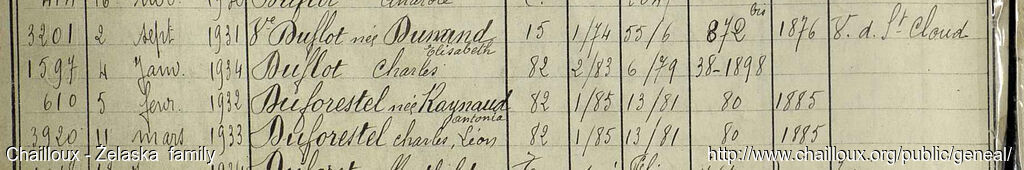 3201 2 sept 1931 Vve Duflot née Durand Elisabeth 15 1/74 55/6 872 bis 1876 V. d. St Cloud
1597 4 Janv. 1934 Duflot Charles 82 2/83 6/79 38-1898
610 5 fevr. 1932 Duforestel née Raynaud antonia 82 1/85 13/81 80 1885
3920 11 mars 1933 Duforestel charles, Léon 82 1/85 13/81 80 1885
Chailloux - Żelaska family
http://www.chailloux.org/public/geneal/